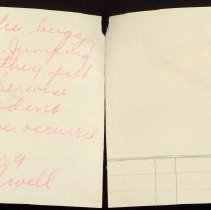 the buggy
Jumping
they put
therwise
ident
e occurred
well